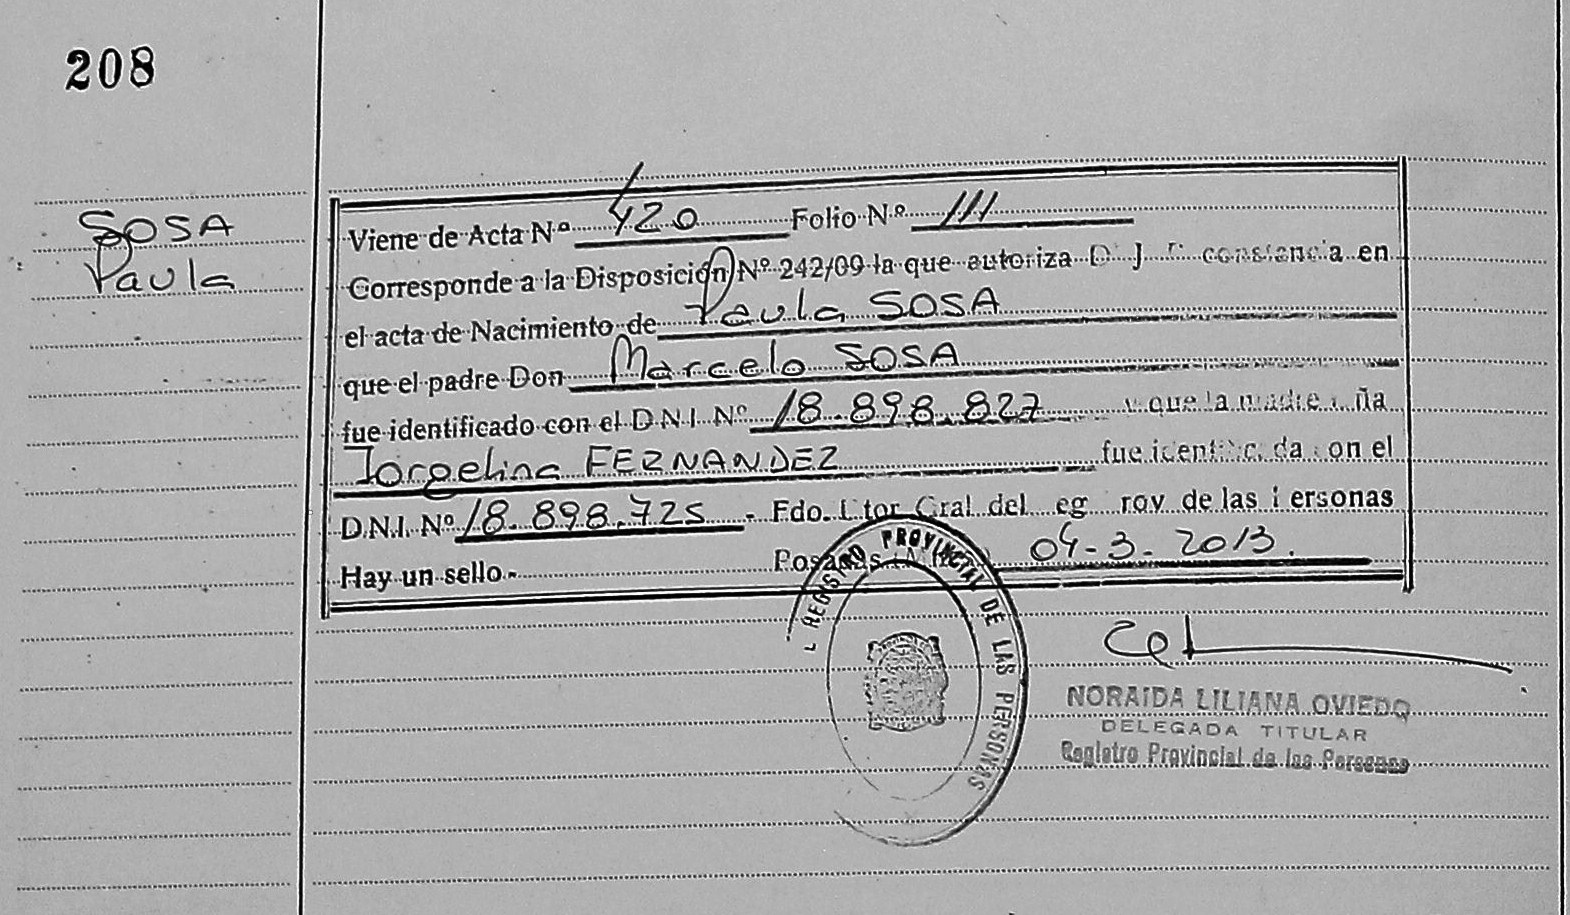 208
SOSA
Paula
Viene de Acta Nº 420 Folio Nº 111
Corresponde a la Disposición Nº 242/09 la que autoriza D J constancia en
el acta de Nacimiento de Paula SOSA
que el padre Don Marcelo SOSA
fue identificado con el D.N.I. Nº 18.898.827 y que la madre ña
Jorgelina FERNANDEZ fue identificada con el
D.N.I. Nº 18.898.725 - Fdo. Dtor Gral del eg rov de las Personas
Hay un sello.- Posadas 04-3-2013.
REGISTRO PROVINCIAL DE LAS PERSONAS
NORAIDA LILIANA OVIEDO
DELEGADA TITULAR
Registro Provincial de las Personas